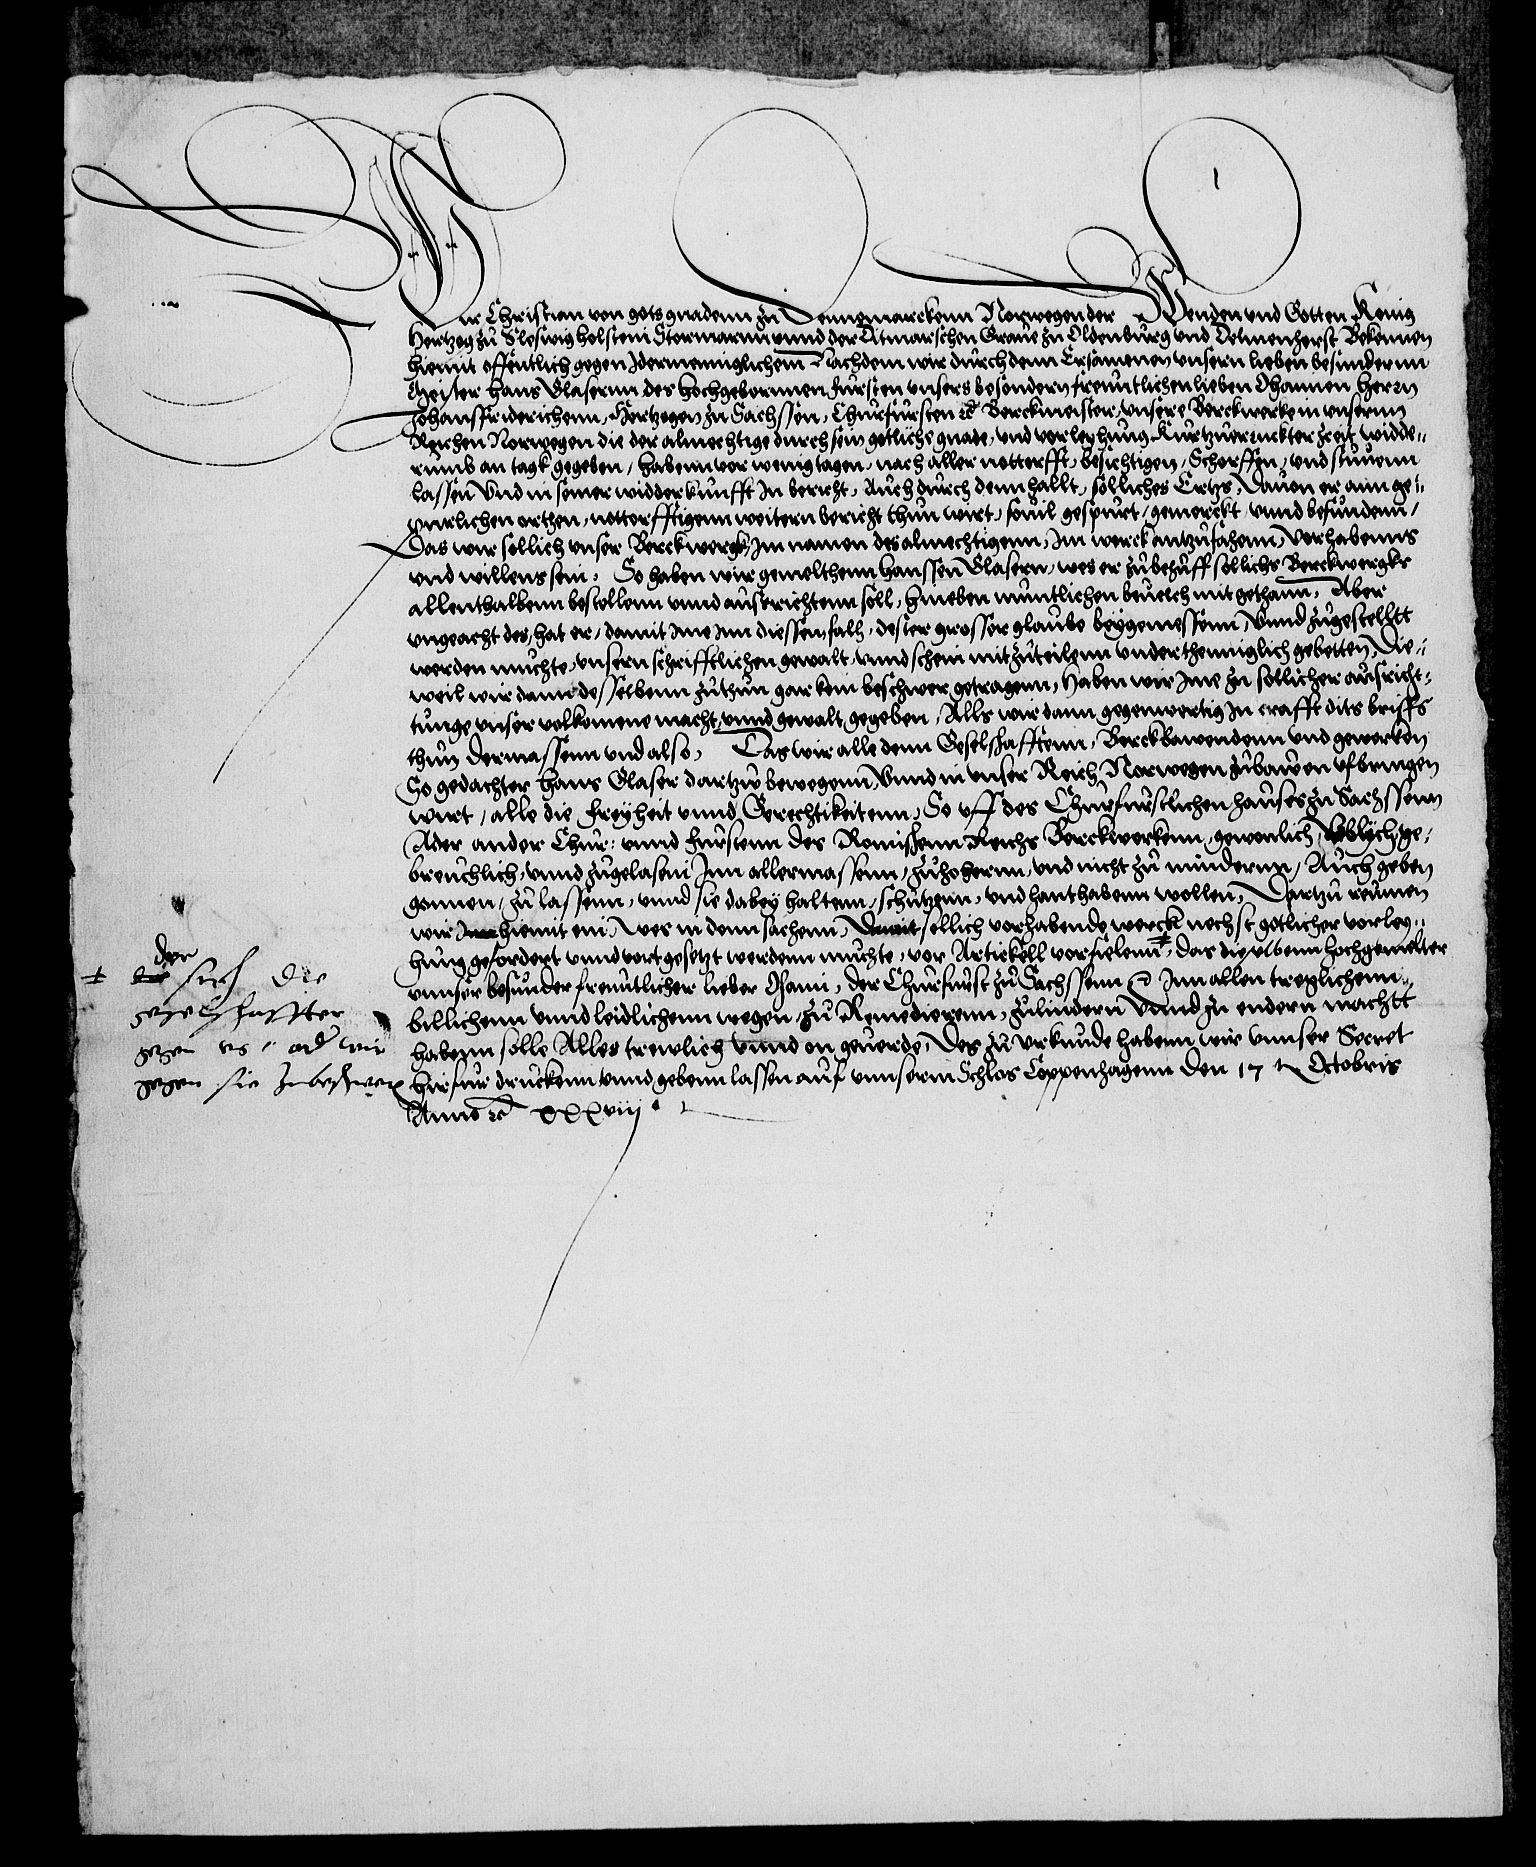 Wir Christian von gots gnadenn zu Dennemarckenn Norwegen der Wenden und Gotten Konig
Hertzog zu Sleswig holstein Stormarnn vnnd der Ditmarschen Graue zu Oldenburg und Delmenhorst Bekennen
hiemit offentlich gegen Idermenniglichem Nachdem wir durch denn Ersamenen vnsern lieben besundernn
Meister Hans Glasernn des hochgebornnen fursten vnsers besondern freuntlichen lieben Ohannen Herrn
Johansfriderichenn, Hertzogen zu Sachssen, Churfursten etc Berckmeister, vnsere Berckwerke in vnsernn
Reichen Norwegen die der almechtige durch sein gotliche gnade, vnd vorleyhung kurtzuerruckter zeit widde-
rumb an tagk gegeben, habenn vor wenig tagen, nach aller notterfft, besichtigen, Schorffen, vnd
lassen Vnd in seiner widderkunfft In bericht, Auch durch denn hallt, solliches Ertzs, Dauon er ann ge-
purlichen orthen, notterfftigenn weitern bericht thun wirt, souil gespurt, gemerckt vnnd befundenn,
Das wir sollich vnser Berckwergk, Im namen des almechtigenn, Im werck antzufahenn, Vorhabenns
vnd willens sein, So haben wir gemelthenn Hanssen Glasern, wes er zubehuff sollichs Berckwergks
allenthalbenn bestellenn vnnd ausrichtenn soll, hineben muntlichen beuelch mit gethann, Aber
vngeacht des, hat er, damit Ime Inn diessem fall, dester grosser glaube beygemessenn Vnnd zugestelltt
werden muchte, vnsern schrifftlichen gewalt, vnnd schein mitzuteilenn underthenniglich gebetten, Die-
weil wir dann desselbenn zuthun gar kein beschwer getragenn, Haben wir Ime zu sollicher ausricht-
tunge vnser volkomene macht, vnnd gewalt gegeben, Alls wir dann gegenwertig In crafft dits briffs
thun dermassenn vnd also, Das wir alle denn Geselschafftenn, Berckbawendenn vnd gewerken
So gedachter Hans Glaser dartzu bewegenn, Vnnd in vnser Reich Norwegen zubawen vfbringen
wirt, alle die freyheit vnnd Gerechtikeitenn, So vff des Churfurstlichen hauses zu Sachssenn
Ader ander Chur- vnnd furstenn des Romischenn Reichs Berckwerkenn, gewonlich, loblych, ge-
breuchlich, vnnd zugelasenn Inn allermassenn, zuhohernn, vnd nicht zu mindernn, Auch geben
gonnen, zu lassenn, vnnd sie dabey haltenn, schutzenn, vnd hanthabenn wollen, Dartzu reumen
wir hiemit ein, Wes in denn sachenn, Damit sollich vorhabende werck nechst gotlicher vorley-
hung gefordert vnnd vortgesetzt werdenn muchte, vor Artickell vorfielenn ‡, das die olbenn hochgemelter
vnnser besunder freuntlicher lieber Ohann, der Churfurst zu Sachssenn etc Inn allen treglichenn,
billichenn vnnd leidlichenn wegen, zu Remedierenn, zulindern vnnd zu endern machtt
habenn solle Alles trewlich vnnd on geuerde, Des zu vrkunde habenn wir vnnser Secret
hirfur druckenn vnnd gebenn lassen auf vnnserm Schlos Coppenhagenn Den 17 Octobris
Anno etc xxxviij
‡ den sich die
geselschafftter
gegen vns, ader wir
gegen sie zubeschwern